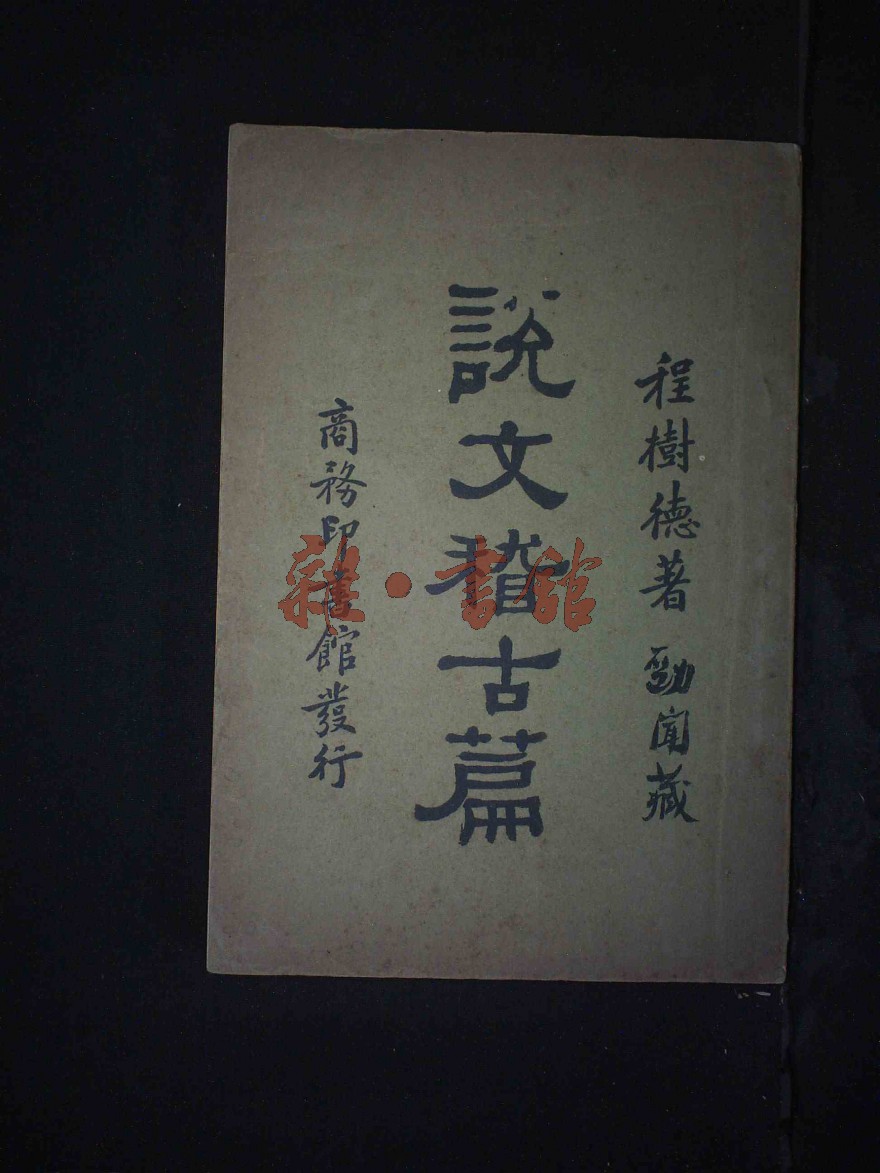 程樹德著 勁聞藏
說文稽古篇
商務印書館發行
雜·書館